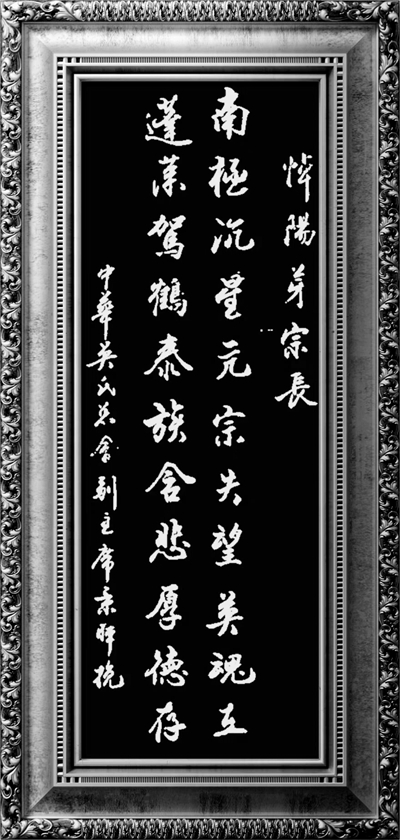 悼陽芽宗長
南極沉星元宗失望英魂在
蓬萊駕鶴泰族含悲厚德存
中華吳氏总會副主席秉晖挽